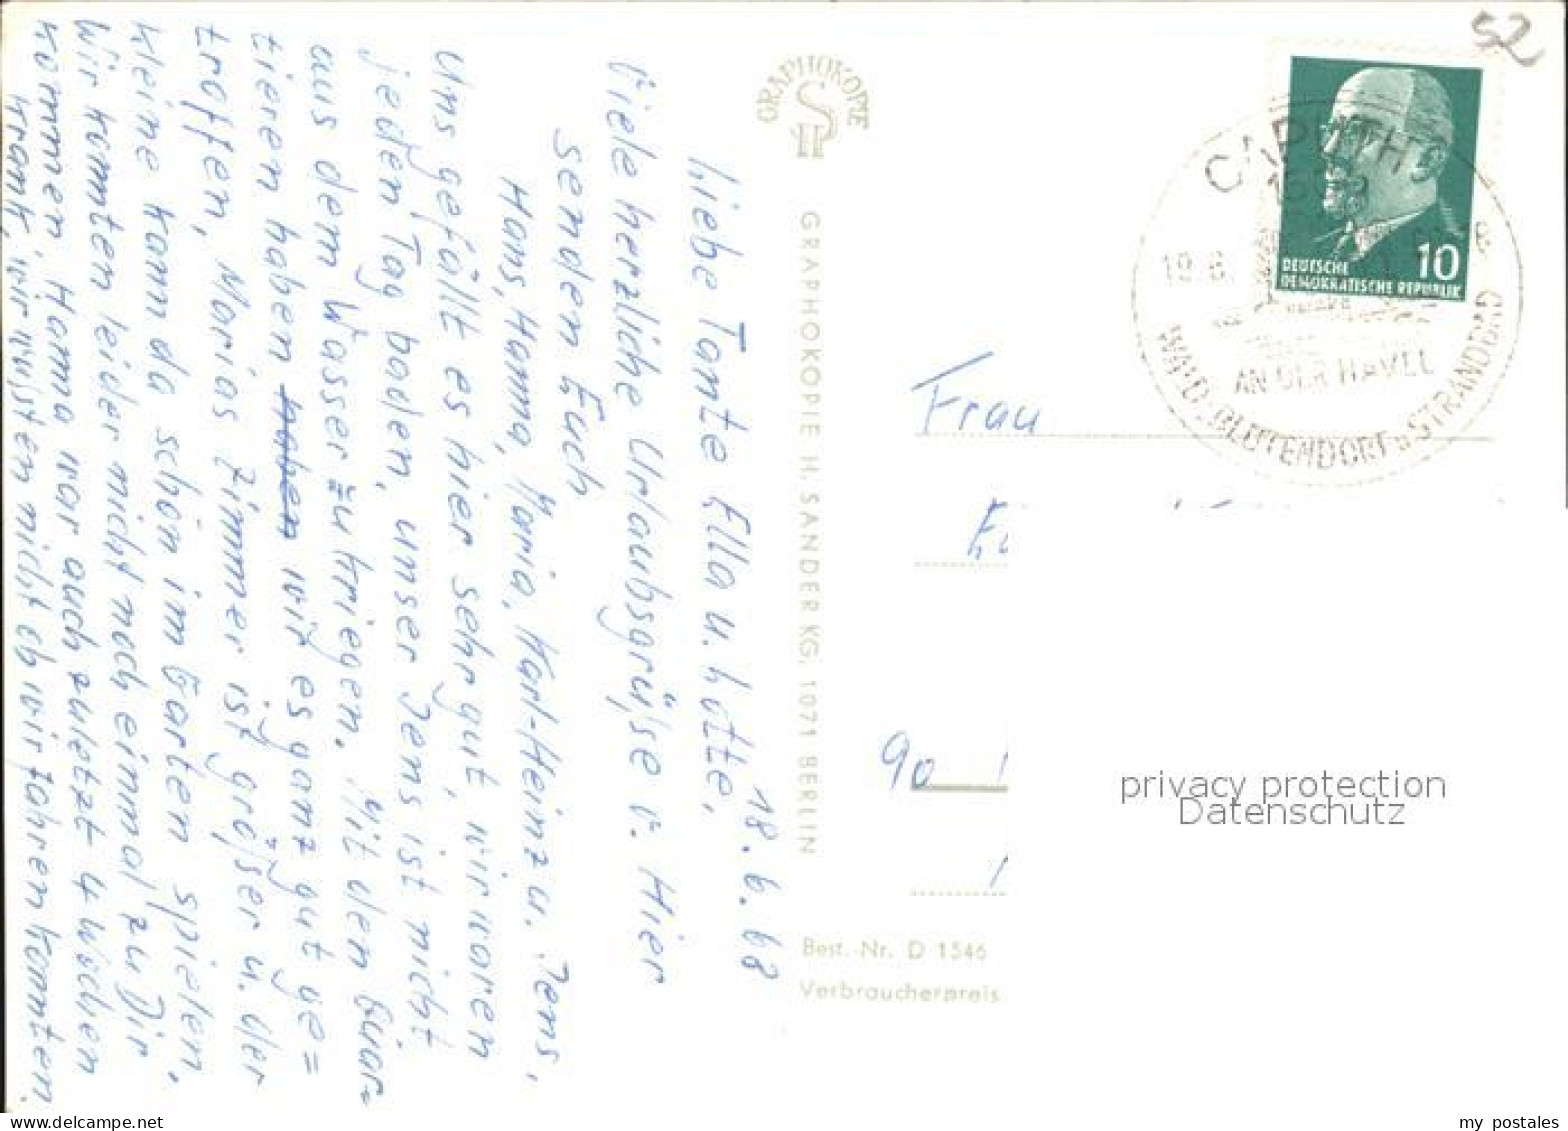 52
18.6.68
Liebe Tante Ella u. Lotte,
Viele herzliche Urlaubsgrüße v. Hier
senden Euch
Hans, Hanna, Maria, Karl-Heinz u. Jens,
Uns gefällt es hier sehr gut, wir waren
jeden Tag baden, unser Jens ist nicht
aus dem Wasser zu kriegen. Mit den Quar-
tieren haben haben wir es ganz gut ge=
troffen, Marias Zimmer ist größer u. der
kleine kann da schön im Garten spielen.
Wir konnten leider nicht noch einmal zu Dir
kommen, Hanna war auch zuletzt 4 Wochen
krank, wir wusten nicht ob wir fahren konnten.
GRAPHOKOPIE
HS
GRAPHOKOPIE H. SANDER KG, 1071 BERLIN
DEUTSCHE
DEMOKRATISCHE REPUBLIK
10
CAPUTH
19.6.
AN DER HAVEL
WALD-, BLÜTENDORF u. STRANDBAD
Frau
90
Best.-Nr. D 1546
Verbraucherpreis
privacy protection
Datenschutz
my postales